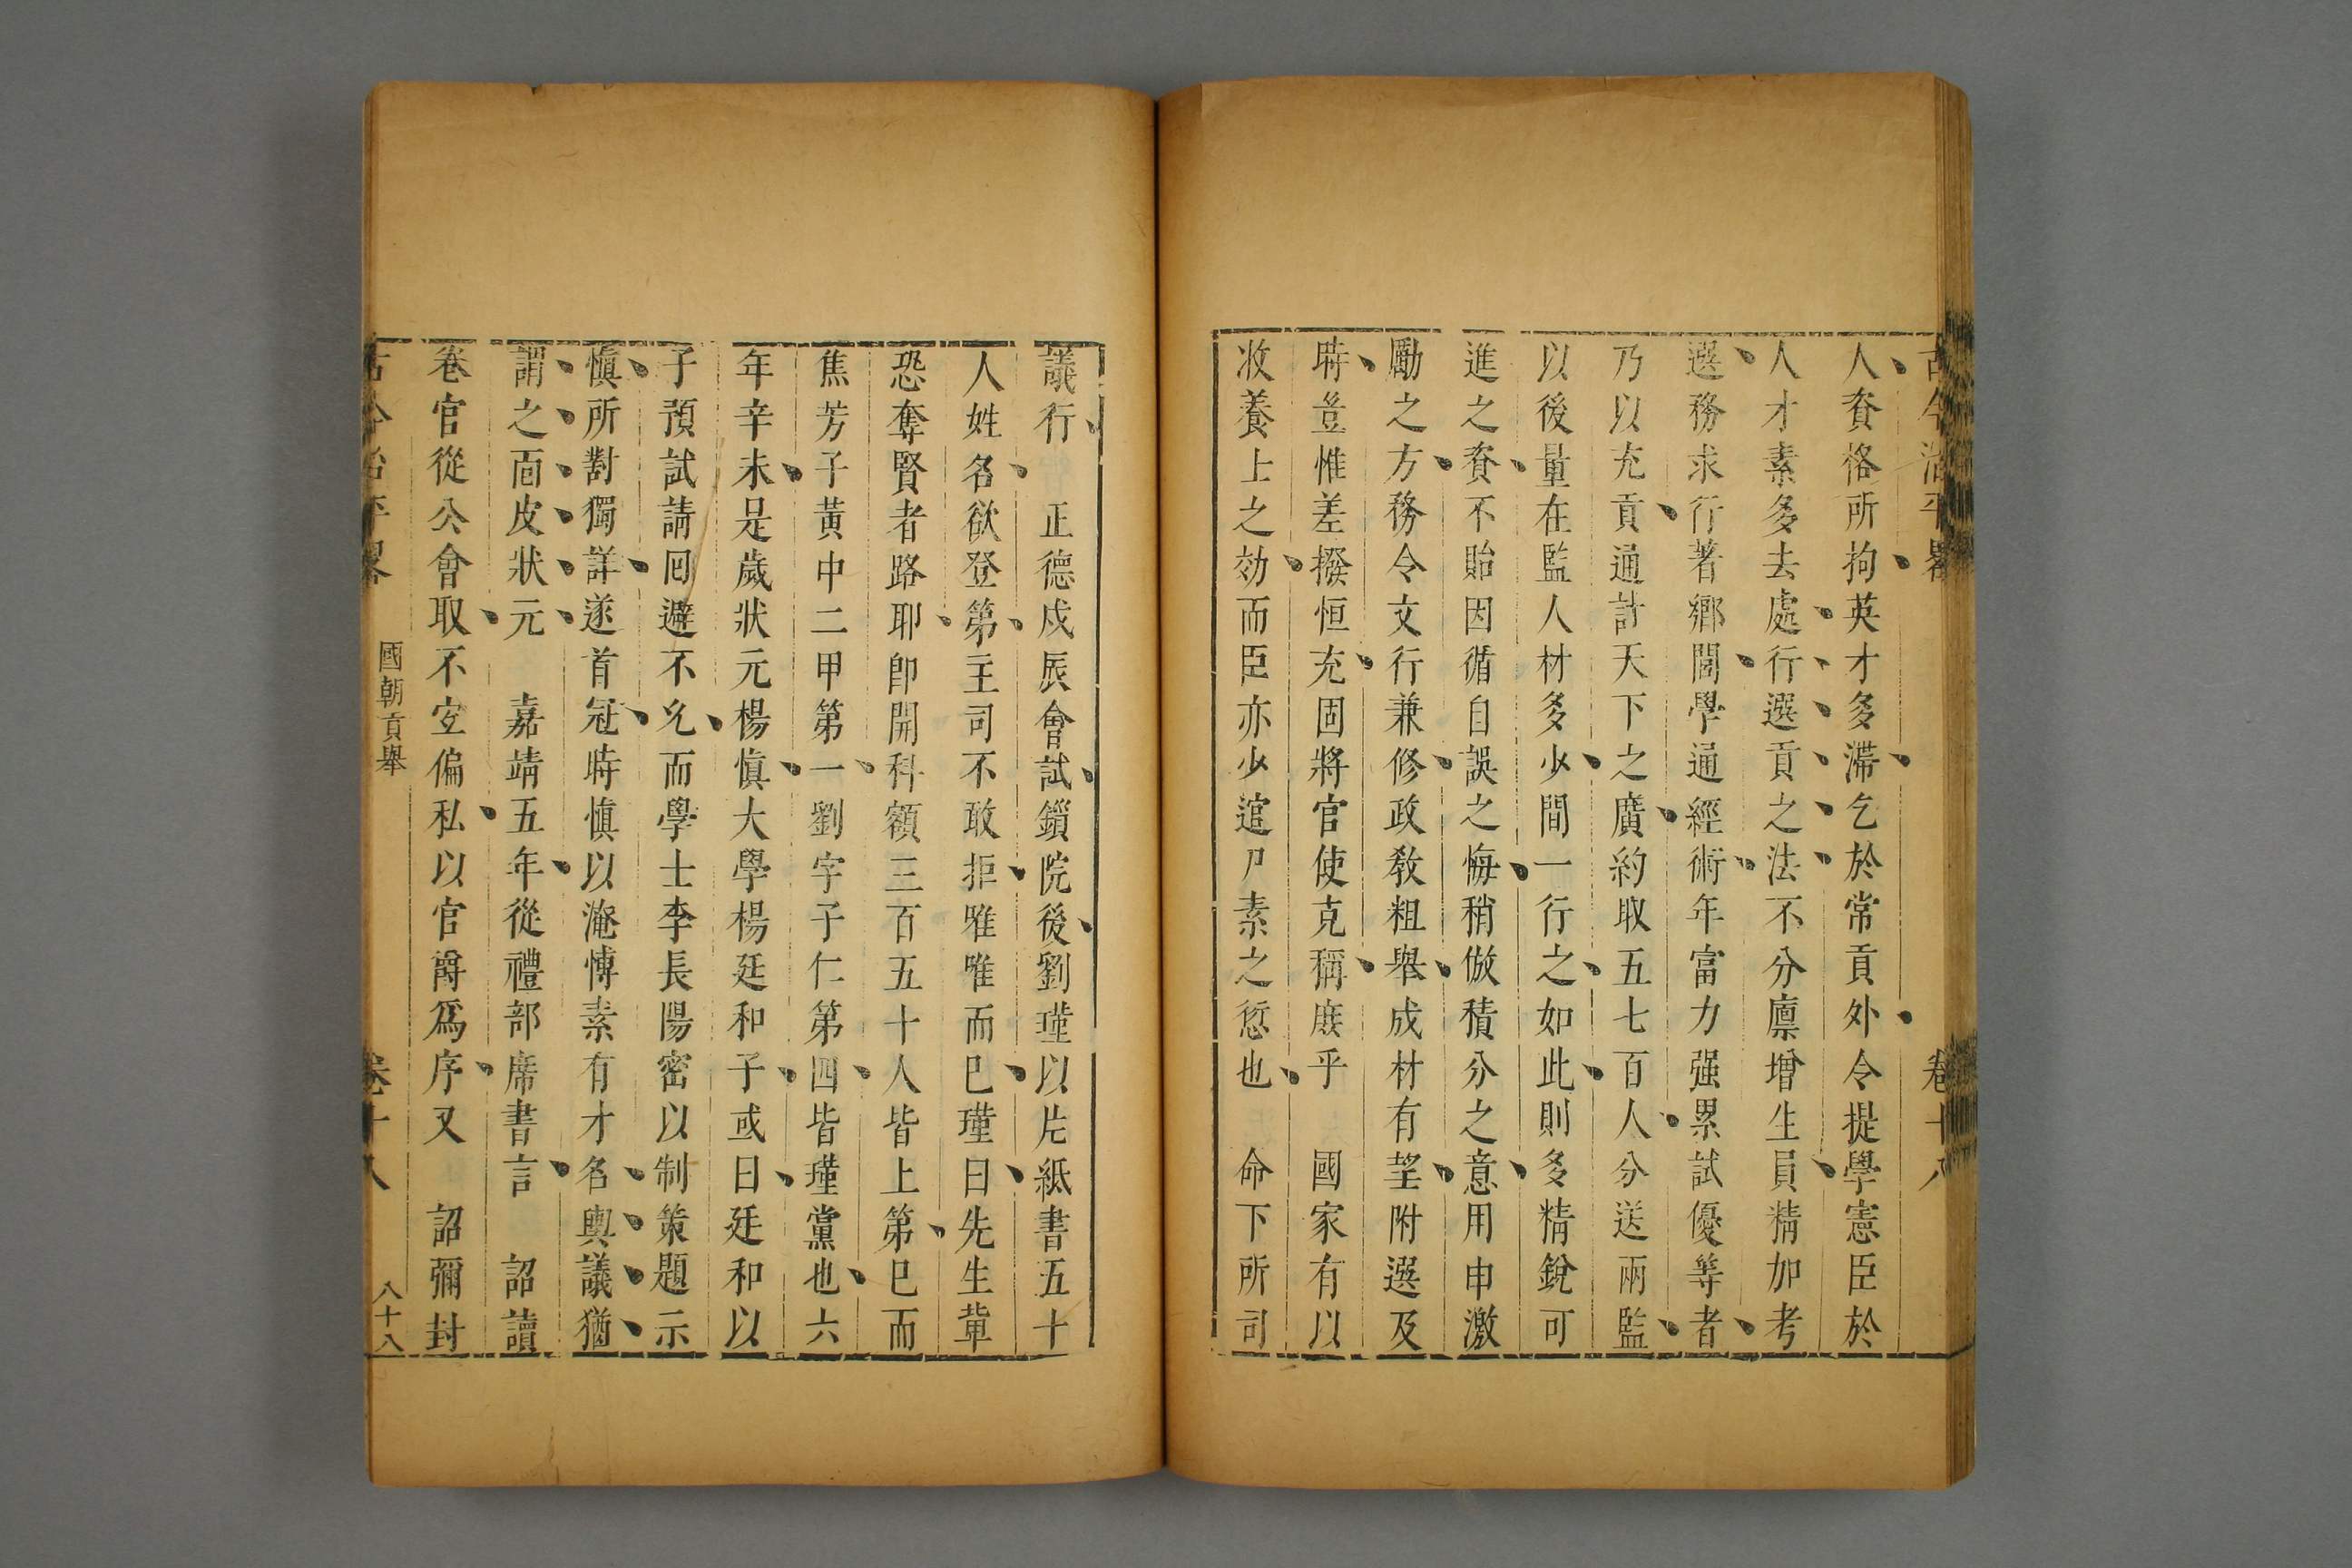 古今治平畧 卷十八
人資格所拘英才多滯乞於常貢外令提學憲臣於
人才素多去處行選貢之法不分廪增生員精加考
選務求行著鄉閭學通經術年富力强累試優等者
乃以充貢通計天下之廣約取五七百人分送兩監
以後量在監人材多少間一行之如此則多精銳可
進之資不貽因循自誤之悔稍倣積分之意用申激
勵之方務令文行兼修政敎粗舉成材有望附選及
時豈惟差撥恒充固將官使克稱庻乎 國家有以
收養上之効而臣亦少逭尸素之愆也 命下所司
議行 正德戍辰會試鎻院後劉瑾以片紙書五十
人姓名欲登第主司不敢拒唯唯而巳瑾曰先生軰
恐奪賢者路耶卽開科額三百五十人皆上第巳而
焦芳子黃中二甲第一劉宇子仁第四皆瑾黨也六
年辛未是歲狀元楊愼大學楊廷和子或曰廷和以
子預試請囘避不允而學士李長陽密以制策題示
愼所對獨詳遂首冠時愼以淹愽素有才名輿議猶
謂之面皮狀元 嘉靖五年從禮部席書言 詔讀
卷官從公會取不宜偏私以官爵爲序又 詔彌封
古今治平畧 國朝貢舉 卷十八 八十八